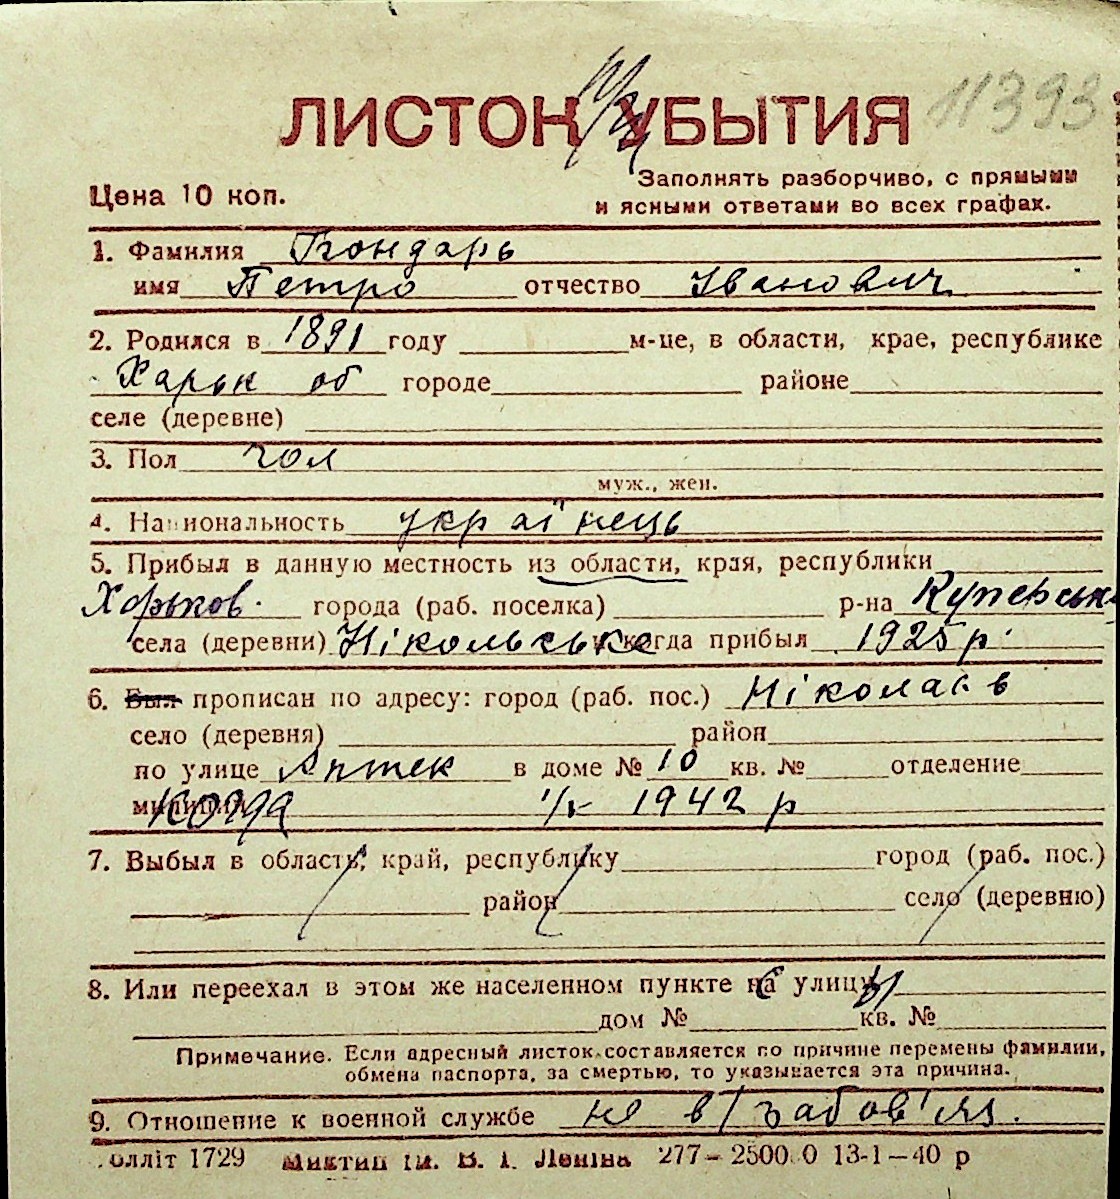 11393
ЛИСТОК УБЫТИЯ
Цена 10 коп.
Заполнять разборчиво, с прямыми
и ясными ответами во всех графах.
1. Фамилия Гондарь
имя Петро отчество Іванович
2. Родился в 1891 году м-це, в области, крае, республике
Харьк об городе районе
селе (деревне)
3. Пол чол
муж., жен.
4. Национальность українець
5. Прибыл в данную местность из области, края, республики
Харьков. города (раб. поселка) р-на
села (деревни) Нікольське и когда прибыл 1925 р.
6. Был прописан по адресу: город (раб. пос.) Ніколаєв
село (деревня) район
по улице Аптек в доме № 10 кв. № отделение
милиции 1942 р
7. Выбыл в область, край, республику город (раб. пос.)
район село (деревню)
8. Или переехал в этом же населенном пункте на улицу
дом № кв. №
Примечание. Если адресный листок составляется по причине перемены фамилии,
обмена паспорта, за смертью, то указывается эта причина.
9. Отношение к военной службе не в/забов'яз.
олліт 1729 ім. В. І. Леніна 277-2500 0 13-1-40 р